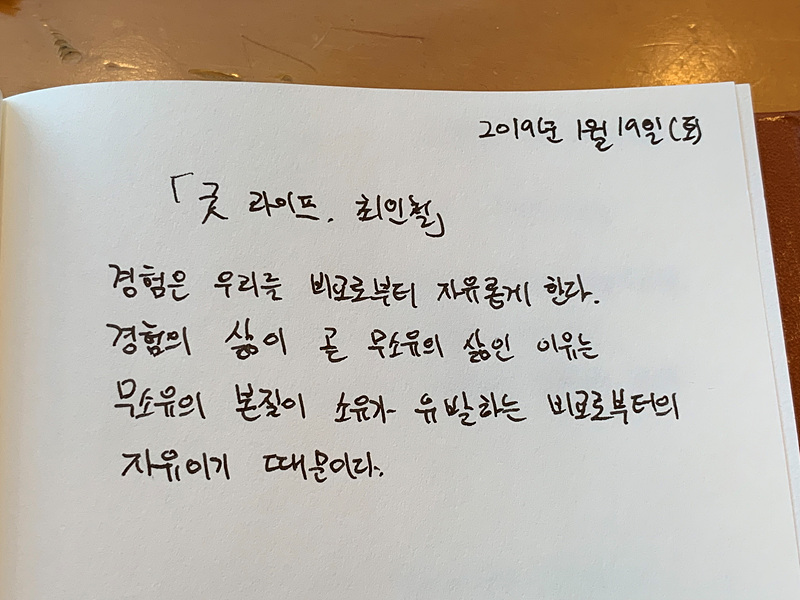 2019년 1월 19일 (토)
「굿 라이프. 최인철」
경험은 우리를 비교로부터 자유롭게 한다.
경험의 삶이 곧 무소유의 삶인 이유는
무소유의 본질이 소유가 유발하는 비교로부터의
자유이기 때문이다.